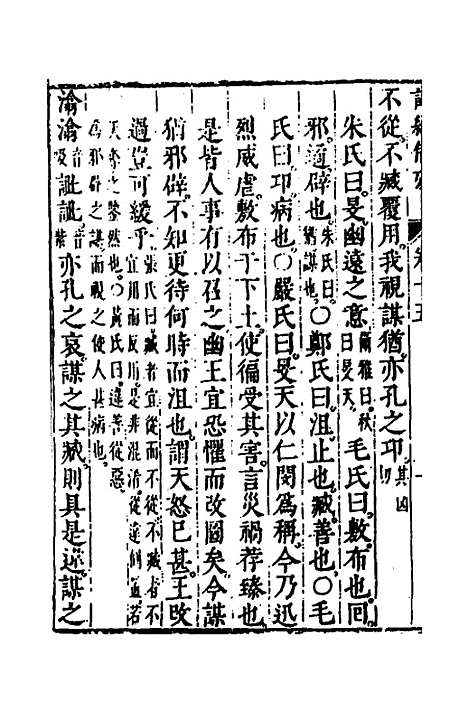 不從不臧覆用我視謀猶亦孔之卭其凶切
朱氏曰旻幽遠之意爾雅曰秋曰旻天毛氏曰敷布也回
邪遹辟也朱氏曰猶謀也○鄭氏曰沮止也臧善也○毛
氏曰卭病也○嚴氏曰旻天以仁閔爲稱今乃迅
烈威虐敷布于下土使徧受其害言災禍荐臻也
是皆人事有以召之幽王宜恐懼而改圖矣今謀
猶邪僻不知更待何時而沮也謂天怒已甚王改
過豈可緩乎張氏曰臧者宜從而不從不臧者不宜用而反用是非混淆從違倒置若
天奪之鑒然也○黃氏曰違善從惡爲邪辟之謀而視之使人甚病也
潝潝音吸訿訿音紫亦孔之哀謀之其臧則具是違謀之